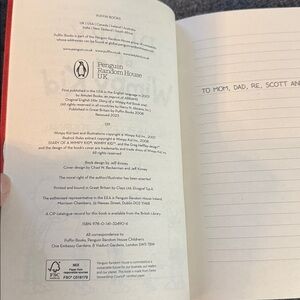 PUFFIN BOOKS
UK | USA | Canada | Ireland | Australia
India | New Zealand | South Africa
Puffin Books is part of the Penguin Random House group of companies
whose addresses can be found at global.penguinrandomhouse.com.
Penguin
Random House
UK
First published in the English language in 2007
Original English title: Diary of a Wimpy Kid
Published in Great Britain by Puffin Books 2008
Reissued 2023
Wimpy Kid text and illustrations copyright © Wimpy Kid, Inc., 2007
DIARY OF A WIMPY KID®, WIMPY KID™, and the Greg Heffley design™
and the design of the book's cover are trademarks and trade dress of Wimpy Kid, Inc.
All rights reserved
Book design by Jeff Kinney
Cover design by Chad W. Beckerman and Jeff Kinney
The moral right of the author/illustrator has been asserted
Printed and bound in Great Britain by Clays Ltd, Elcograf S.p.A.
The authorised representative in the EEA is Penguin Random House Ireland,
Morrison Chambers, 32 Nassau Street, Dublin D02 YH68
A CIP catalogue record for this book is available from the British Library
ISBN: 978-0-141-32490-6
All correspondence to:
Puffin Books, Penguin Random House Children's
One Embassy Gardens, 8 Viaduct Gardens, London SW11 7BW
FSC
MIX
Paper from
responsible sources
FSC® C018179
Penguin Random House is committed to a
sustainable future for our business, our readers
and our planet. This book is made from Forest
Stewardship Council® certified paper.
TO MOM, DAD, RE, SCOTT AN